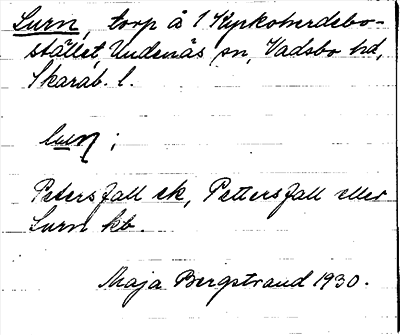 Surn, torp å 1 Kyrkoherdebo-
stället, Undenäs sn, Vadsbo hd,
Skarab. l.
Petersfall ek, Pettersfall eller
Surn kb.
Maja Bergstrand 1930.